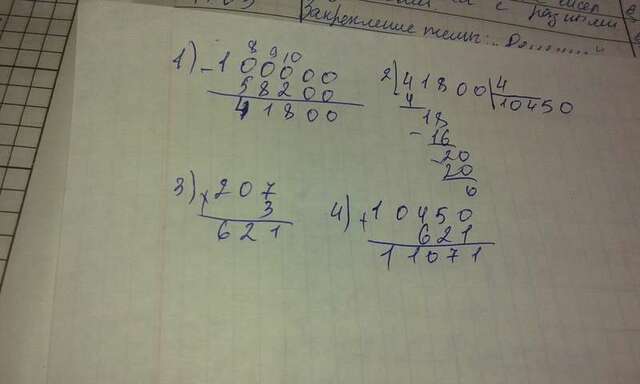 с разными
Закрепление темы:
1) - 100000
8 9 10
58200
41800
2) 41800 4
4 10450
18
- 16
- 20
20
0
3) x 207
3
621
4) + 10450
621
11071